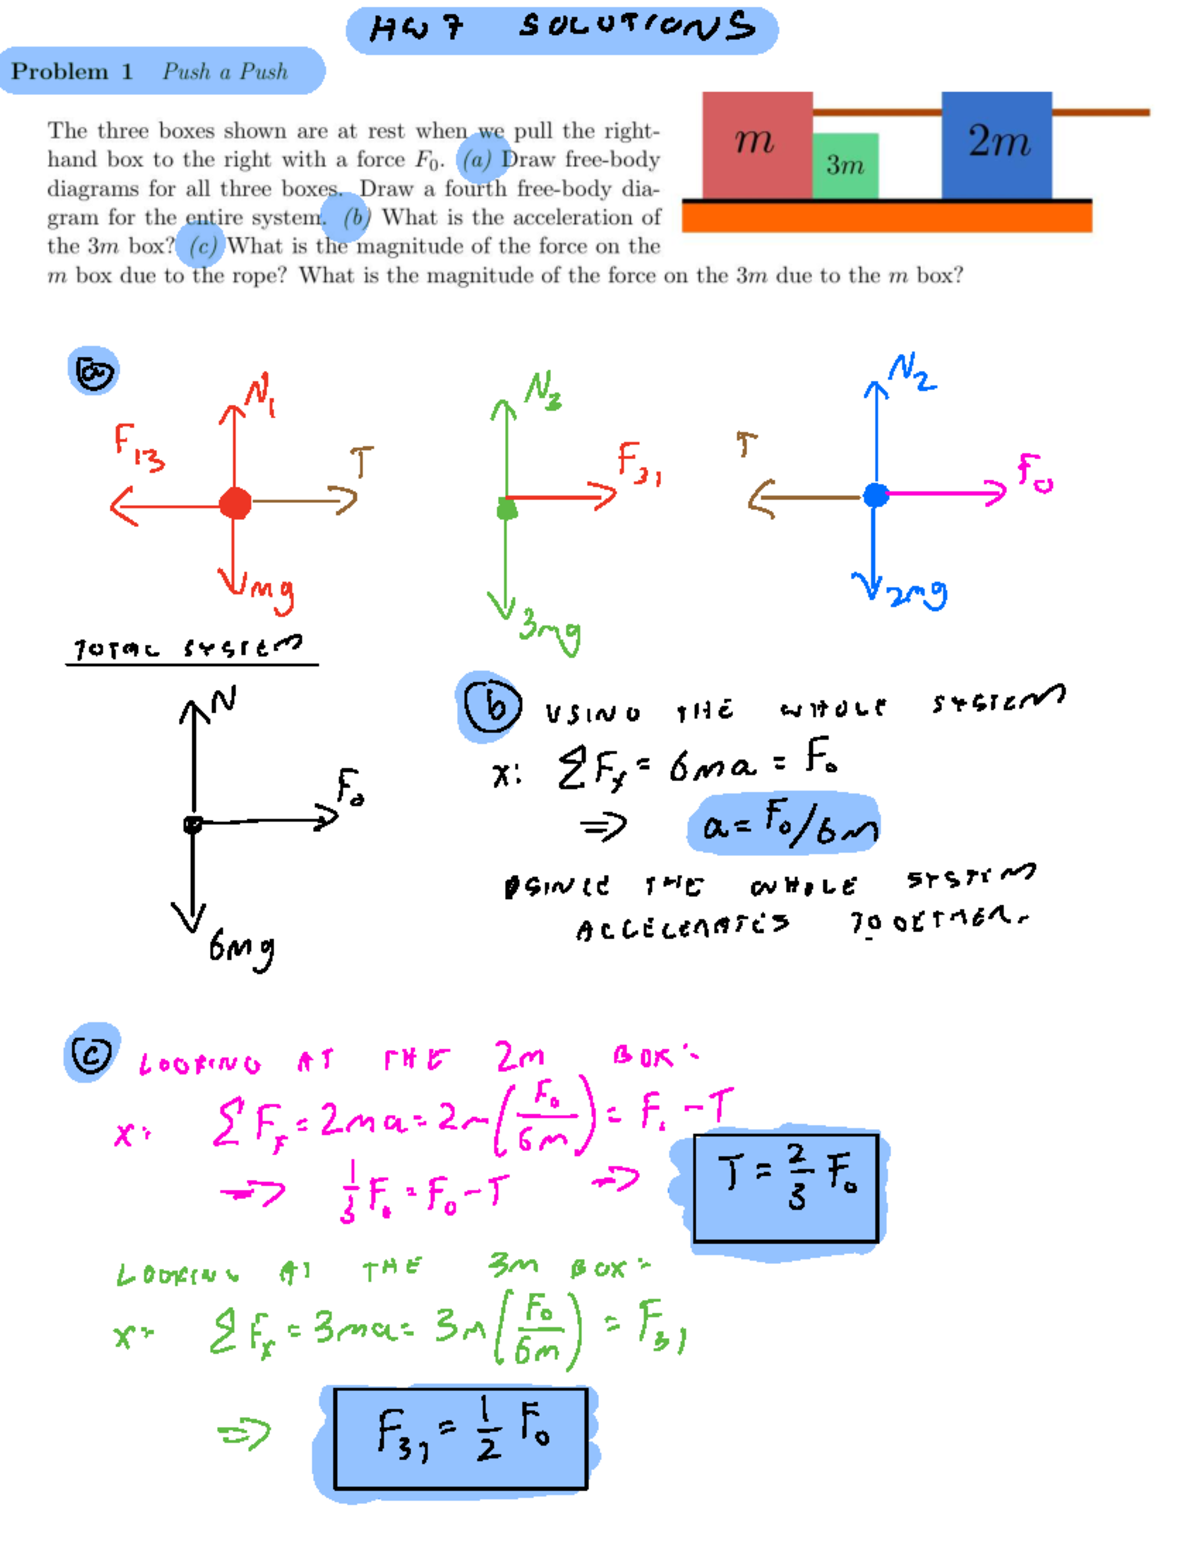 HW 7 SOLUTIONS
Problem 1 Push a Push
The three boxes shown are at rest when we pull the right-
hand box to the right with a force F₀. (a) Draw free-body
diagrams for all three boxes. Draw a fourth free-body dia-
gram for the entire system. (b) What is the acceleration of
the 3m box? (c) What is the magnitude of the force on the
m box due to the rope? What is the magnitude of the force on the 3m due to the m box?
m
3m
2m
(a)
N₁
F₁₃
T
mg
N₃
F₃₁
3mg
N₂
T
F₀
2mg
TOTAL SYSTEM
N
F₀
6mg
(b) USING THE WHOLE SYSTEM
x: ΣFₓ = 6ma = F₀
⇒ a = F₀/6m
SINCE THE WHOLE SYSTEM
ACCELERATES TOGETHER.
(c) LOOKING AT THE 2m BOX:
x: ΣFₓ = 2ma = 2m(F₀/6m) = F₀ - T
⇒ 1/3 F₀ = F₀ - T ⇒ T = 2/3 F₀
LOOKING AT THE 3m BOX:
x: ΣFₓ = 3ma = 3m(F₀/6m) = F₃₁
⇒ F₃₁ = 1/2 F₀